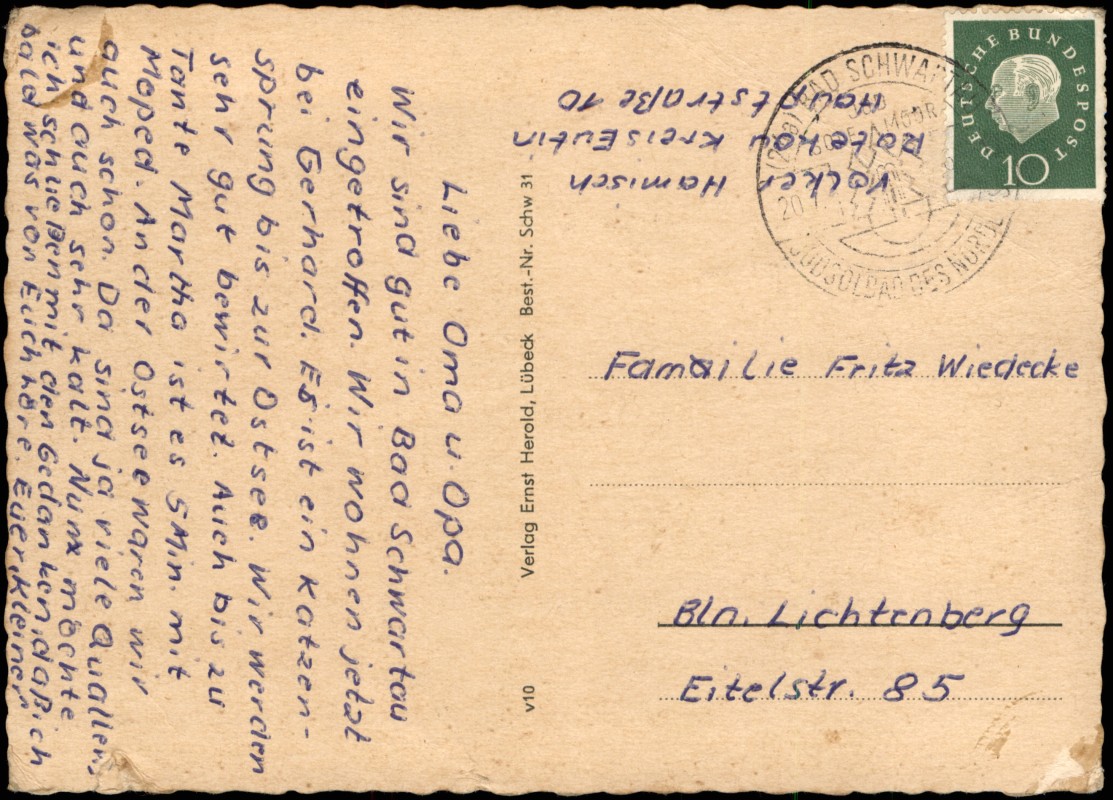 Liebe Oma u. Opa.
Wir sind gut in Bad Schwartau
eingetroffen. Wir wohnen jetzt
bei Gerhard. Es ist ein Katzen-
sprung bis zur Ostsee. Wir werden
sehr gut bewirtet. Auch bis zu
Tante Martha ist es 5 Min. mit
Moped. An der Ostsee waren wir
auch schon. Da sind ja viele Quallen,
und auch sehr kalt. Nun möchte
ich schließen mit den Gedanken, daß ich
bald was von Euch höre. Euer, Kleiner
Verlag Ernst Herold, Lübeck Best.-Nr. Schw 31
v10
Volker Hamisch
Ratekau Kreis Eutin
Hauptstraße 10
BAD SCHWARTAU
JODSOLBAD DES NORDENS
DEUTSCHE BUNDESPOST
10
Familie Fritz Wiedecke
Bln. Lichtenberg
Eitelstr. 85